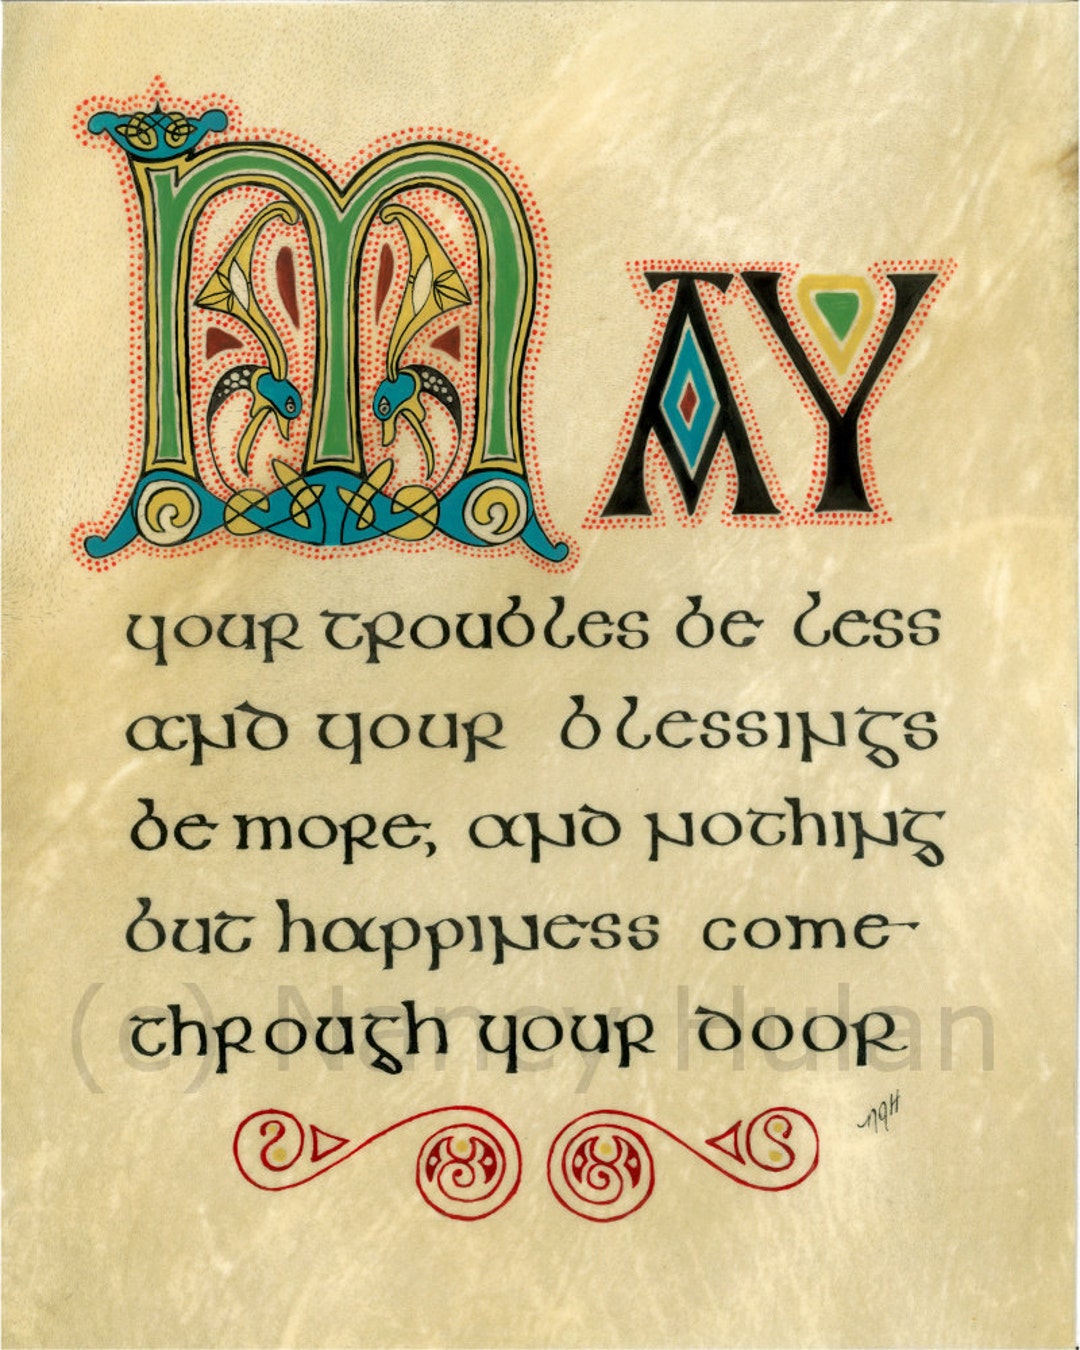 MAY
your troubles be less
and your blessings
be more, and nothing
but happiness come
through your door
(c) Nancy Hulan
NGH